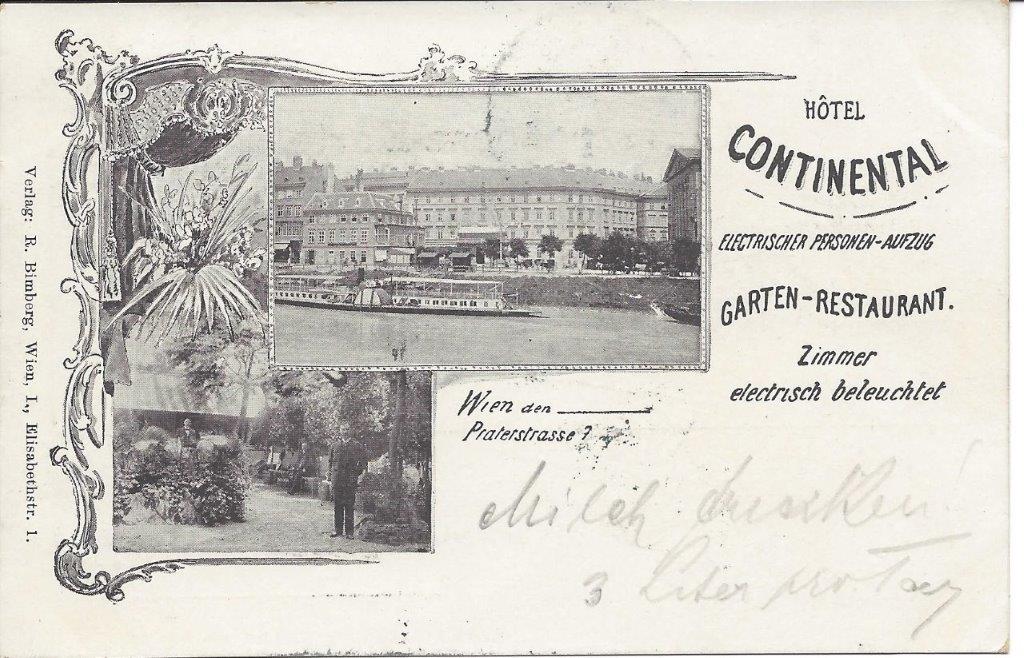 HÔTEL
CONTINENTAL
ELECTRISCHER PERSONEN-AUFZUG
GARTEN-RESTAURANT.
Zimmer
electrisch beleuchtet
Wien den
Praterstrasse 7
Milch
3 Liter pro Tag
Verlag: R. Bimberg, Wien, I., Elisabethstr. 1.